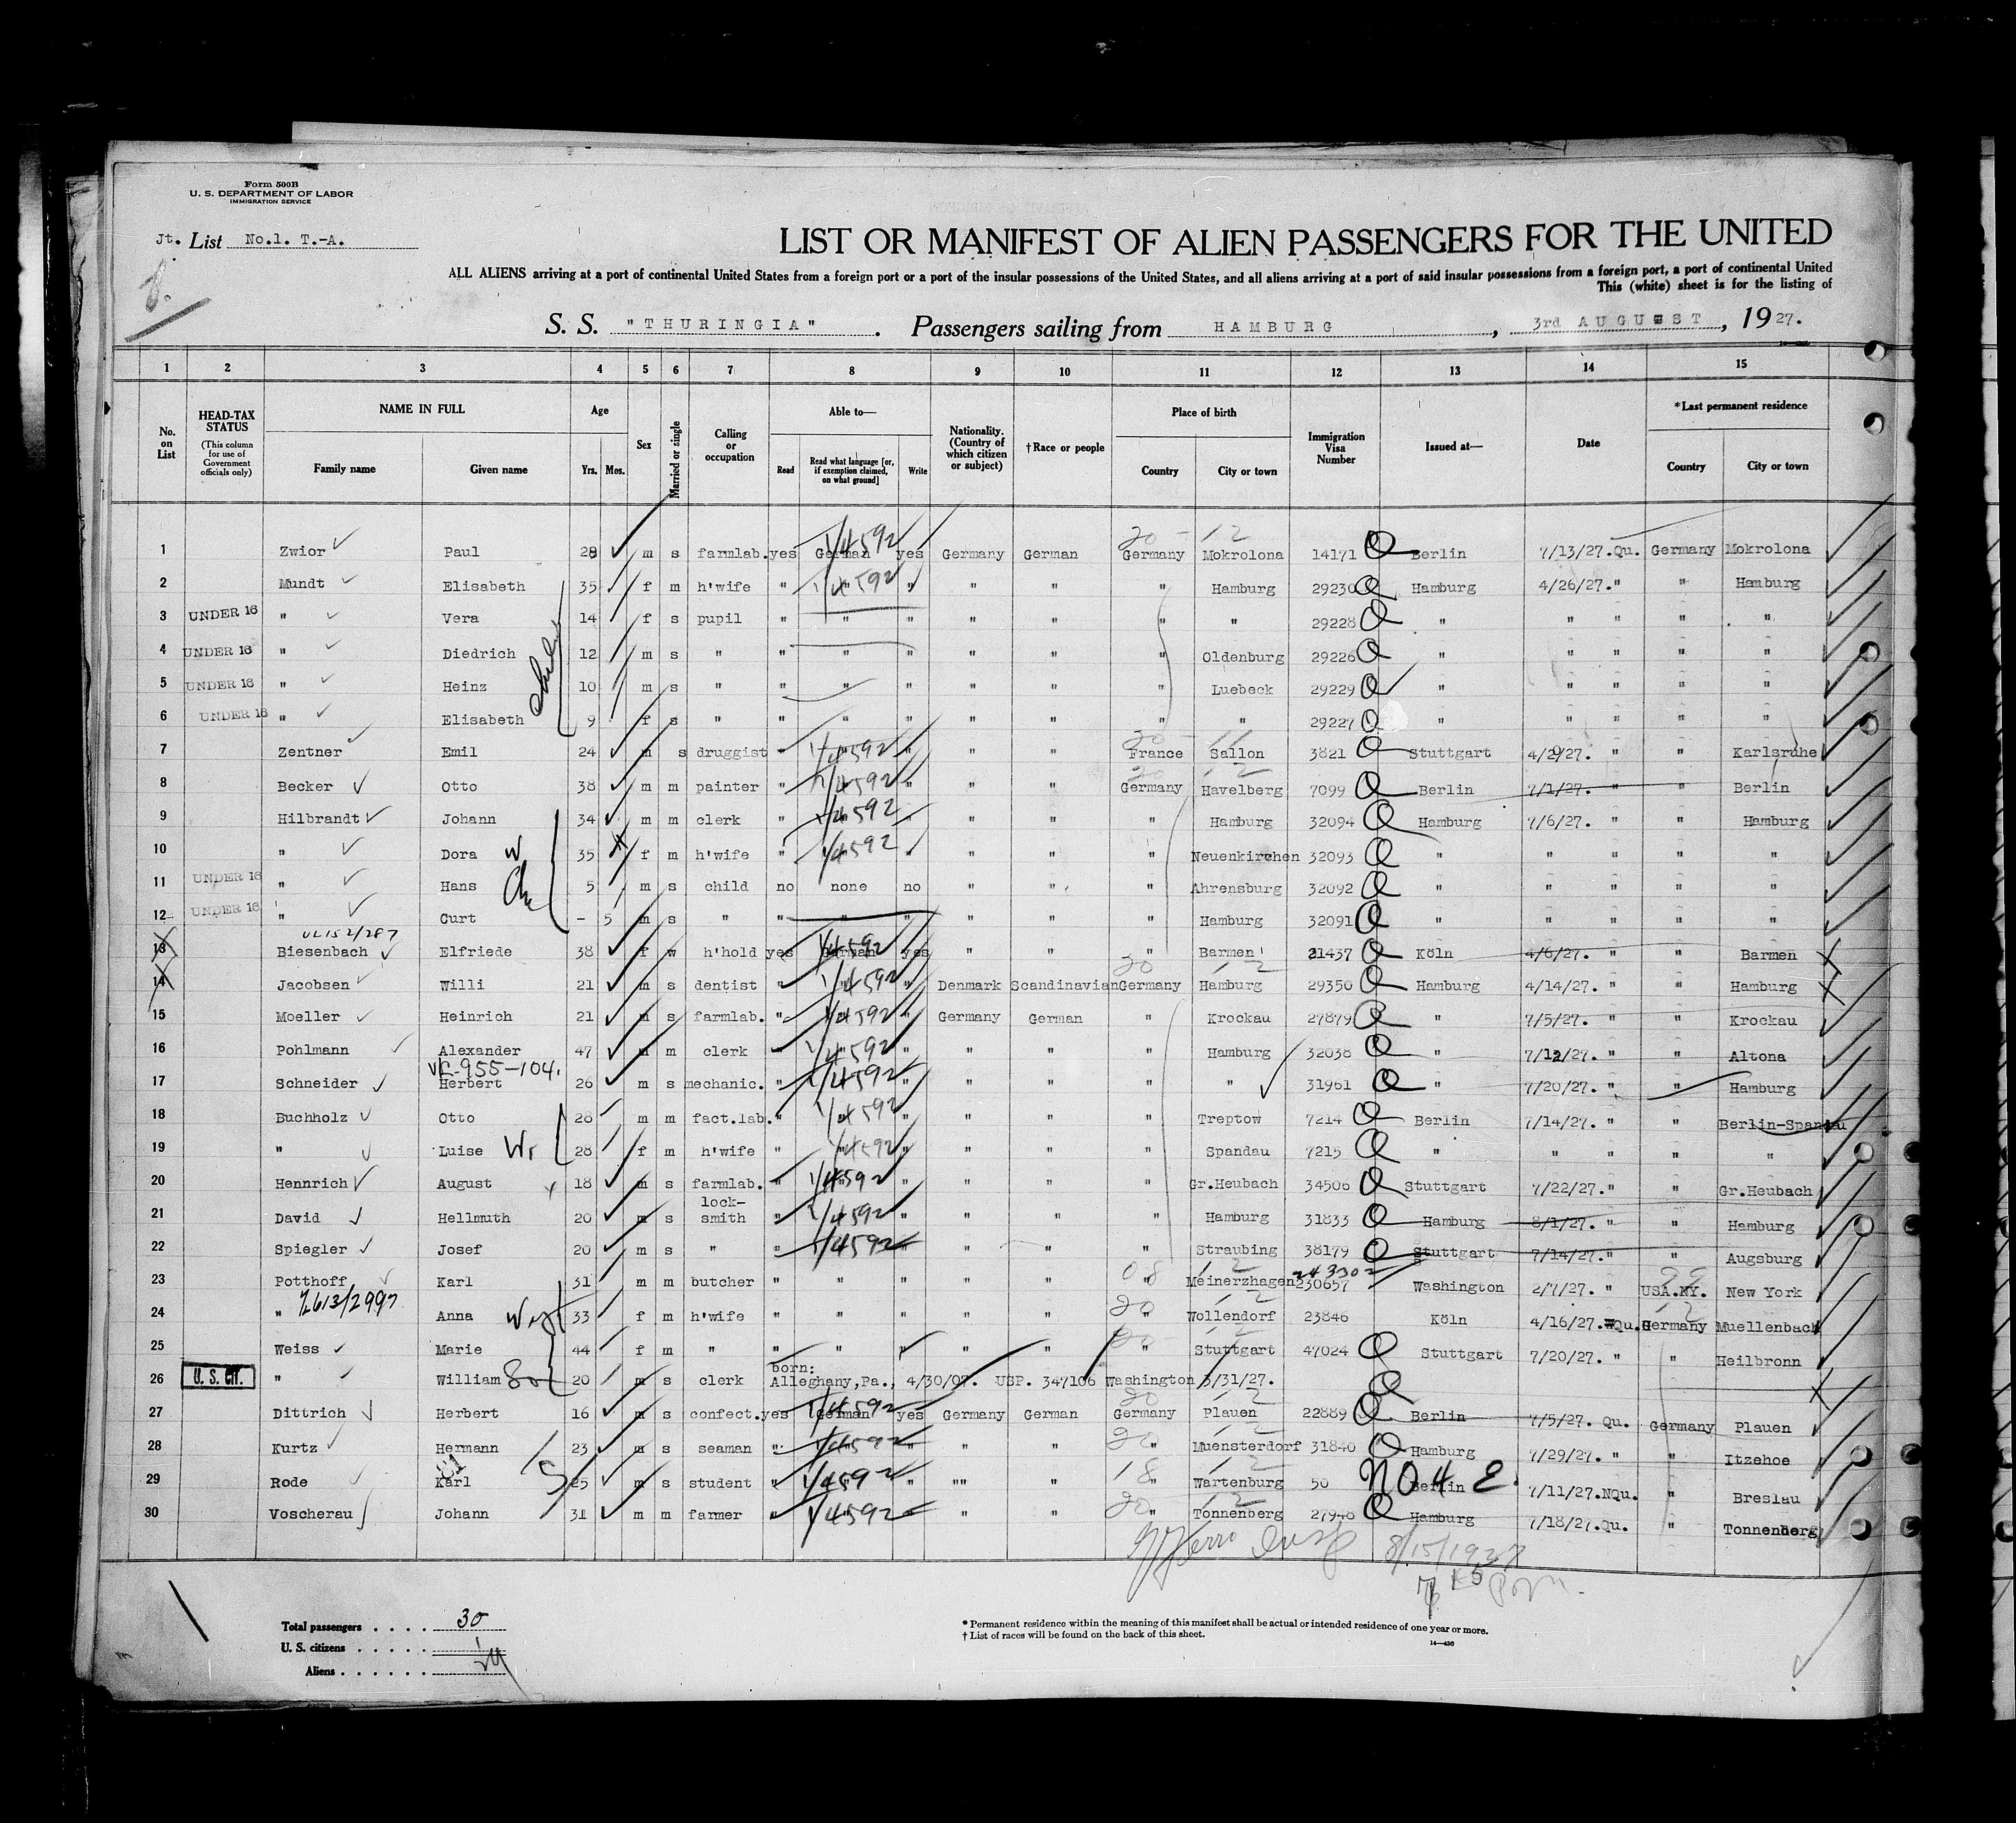 Form 500B
U. S. DEPARTMENT OF LABOR
IMMIGRATION SERVICE
Jt. List No.1. T.-A.
LIST OR MANIFEST OF ALIEN PASSENGERS FOR THE UNITED
ALL ALIENS arriving at a port of continental United States from a foreign port or a port of the insular possessions of the United States, and all aliens arriving at a port of said insular possessions from a foreign port, a port of continental United
This (white) sheet is for the listing of
S. S. "THURINGIA". Passengers sailing from HAMBURG, 3rd AUGUST, 1927.
1 2 3 4 5 6 7 8 9 10 11 12 13 14 15
No. on List
HEAD-TAX STATUS (This column for use of Government officials only)
NAME IN FULL Family name Given name
Age Yrs. Mos.
Sex
Married or single
Calling or occupation
Able to— Read Read what language [or, if exemption claimed, on what ground] Write
Nationality. (Country of which citizen or subject)
†Race or people
Place of birth Country City or town
Immigration Visa Number
Issued at—
Date
*Last permanent residence Country City or town
1 Zwior Paul 28 m s farmlab. yes German 1/4592 yes Germany German Germany Mokrolona 14171 Berlin 7/13/27. Qu. Germany Mokrolona
2 Mundt Elisabeth 35 f m h'wife " " 1/4592 " " " " Hamburg 29230 Hamburg 4/26/27. " " Hamburg
3 UNDER 16 " Vera 14 f s pupil " " " " " " " 29228 " " " " "
4 UNDER 16 " Diedrich 12 m s " " " " " " " Oldenburg 29226 " " " " "
5 UNDER 16 " Heinz 10 m s " " " " " " " Luebeck 29229 " " " " "
6 UNDER 16 " Elisabeth 9 f s " " " " " " " " 29227 " " " " "
7 Zentner Emil 24 m s druggist " " 1/4592 " " " France Sallon 3821 Stuttgart 4/29/27. " " Karlsruhe
8 Becker Otto 38 m m painter " " 1/4592 " " " Germany Havelberg 7099 Berlin 7/1/27. " " Berlin
9 Hilbrandt Johann 34 m m clerk " " 1/4592 " " " " Hamburg 32094 Hamburg 7/6/27. " " Hamburg
10 " Dora W 35 f m h'wife " " 1/4592 " " " " Neuenkirchen 32093 " " " " "
11 UNDER 16 " Hans 5 m s child no none no " " " Ahrensburg 32092 " " " " "
12 UNDER 16 " Curt - 5 m s " " " " " " " Hamburg 32091 " " " " "
13 Biesenbach Elfriede 38 f w h'hold yes German 1/4592 yes " " " Barmen 21437 Köln 4/6/27. " " Barmen
14 Jacobsen Willi 21 m s dentist " " 1/4592 " Denmark Scandinavian Germany Hamburg 29350 Hamburg 4/14/27. " " Hamburg
15 Moeller Heinrich 21 m s farmlab. " " 1/4592 " Germany German " Krockau 27879 " 7/5/27. " " Krockau
16 Pohlmann Alexander 47 m m clerk " " 1/4592 " " " " Hamburg 32038 " 7/12/27. " " Altona
17 Schneider Herbert 26 m s mechanic. " " 1/4592 " " " " " 31961 " 7/20/27. " " Hamburg
18 Buchholz Otto 28 m m fact.lab. " " 1/4592 " " " " Treptow 7214 Berlin 7/14/27. " " Berlin-Spandau
19 " Luise 28 f m h'wife " " 1/4592 " " " " Spandau 7215 " " " " "
20 Hennrich August 18 m s farmlab. " " 1/4592 " " " " Gr.Heubach 34506 Stuttgart 7/22/27. " " Gr.Heubach
21 David Hellmuth 20 m s lock-smith " " 1/4592 " " " " Hamburg 31833 Hamburg 8/1/27. " " Hamburg
22 Spiegler Josef 20 m s " " " 1/4592 " " " " Straubing 38179 Stuttgart 7/14/27. " " Augsburg
23 Potthoff Karl 31 m m butcher " " " " " " Meinerzhagen 230657 Washington 2/7/27. " USA.NY. New York
24 " Anna 33 f m h'wife " " " " " " Wollendorf 23846 Köln 4/16/27. Qu. Germany Muellenbach
25 Weiss Marie 44 f m " " " " " " " Stuttgart 47024 Stuttgart 7/20/27. " " Heilbronn
26 U. S. CIT. " William 20 m s clerk born: Alleghany,Pa., 4/30/07. USP. 347106 Washington 3/31/27.
27 Dittrich Herbert 16 m s confect. yes German 1/4592 yes Germany German Germany Plauen 22889 Berlin 7/5/27. Qu. Germany Plauen
28 Kurtz Hermann 23 m s seaman " " 1/4592 " " " " Muensterdorf 31840 Hamburg 7/29/27. " " Itzehoe
29 Rode Karl 25 m s student " " 1/4592 " "" " " Wartenburg 50 Berlin 7/11/27. NQu. " Breslau
30 Voscherau Johann 31 m m farmer " " 1/4592 " " " " Tonnenberg 27948 Hamburg 7/18/27. Qu. " Tonnenberg
8/15/1927
Total passengers . . . . 30
U. S. citizens . . . . . 1
Aliens . . . . . .
* Permanent residence within the meaning of this manifest shall be actual or intended residence of one year or more.
† List of races will be found on the back of this sheet.
14—430